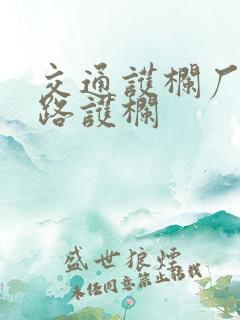 交通護欄厂
路護欄
盛世狼煙
未经同意禁止转载